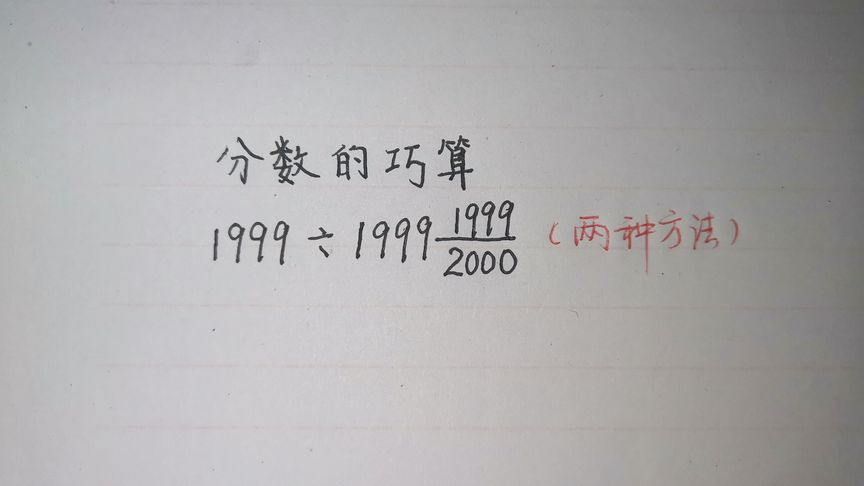 分数的巧算
1999÷1999 1999/2000（两种方法）